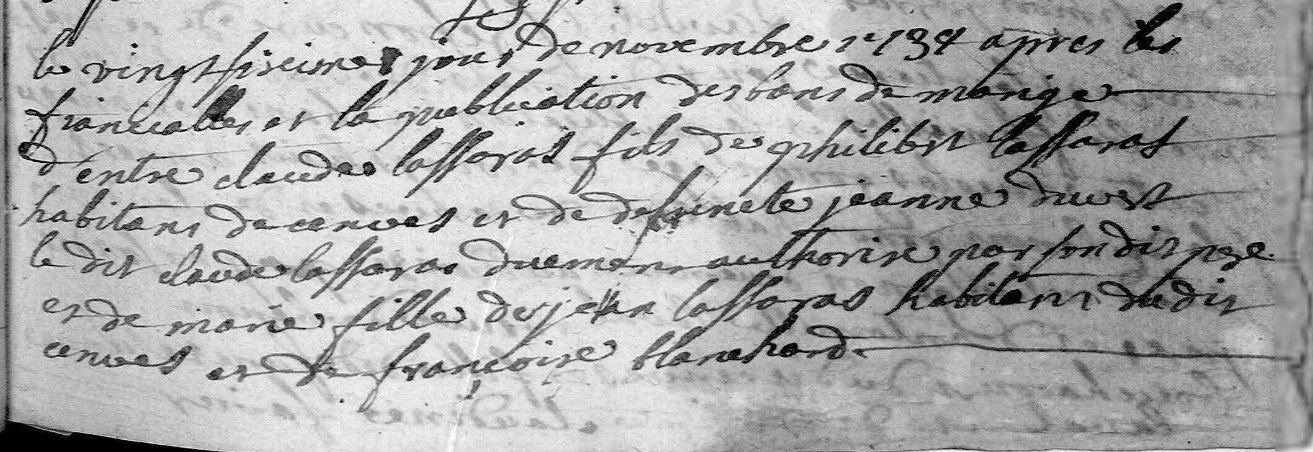 le vingtsixieme jour de novembre 1734 apres les
fiancialles et la publication des bans de marige
d'entre claude lassaras fils de philibert lassaras
habitans de cenves et de defuncte jeanne duvert
le dit claude lassaras duement authorise par son dit pere
et de marie fille de jean lassaras habitant du dit
cenves et de françoise blanchard